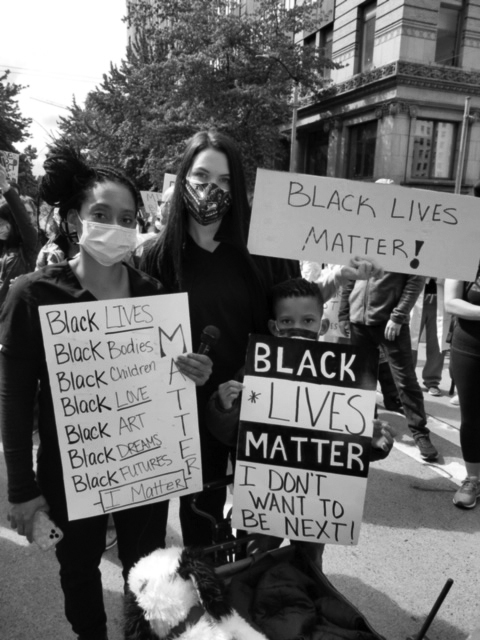 BLACK LIVES
MATTER!
Black LIVES
Black Bodies
Black Children
Black LOVE
Black ART
Black DREAMS
Black FUTURES
I Matter
MATTER
BLACK
* LIVES
MATTER
I DON'T
WANT TO
BE NEXT!